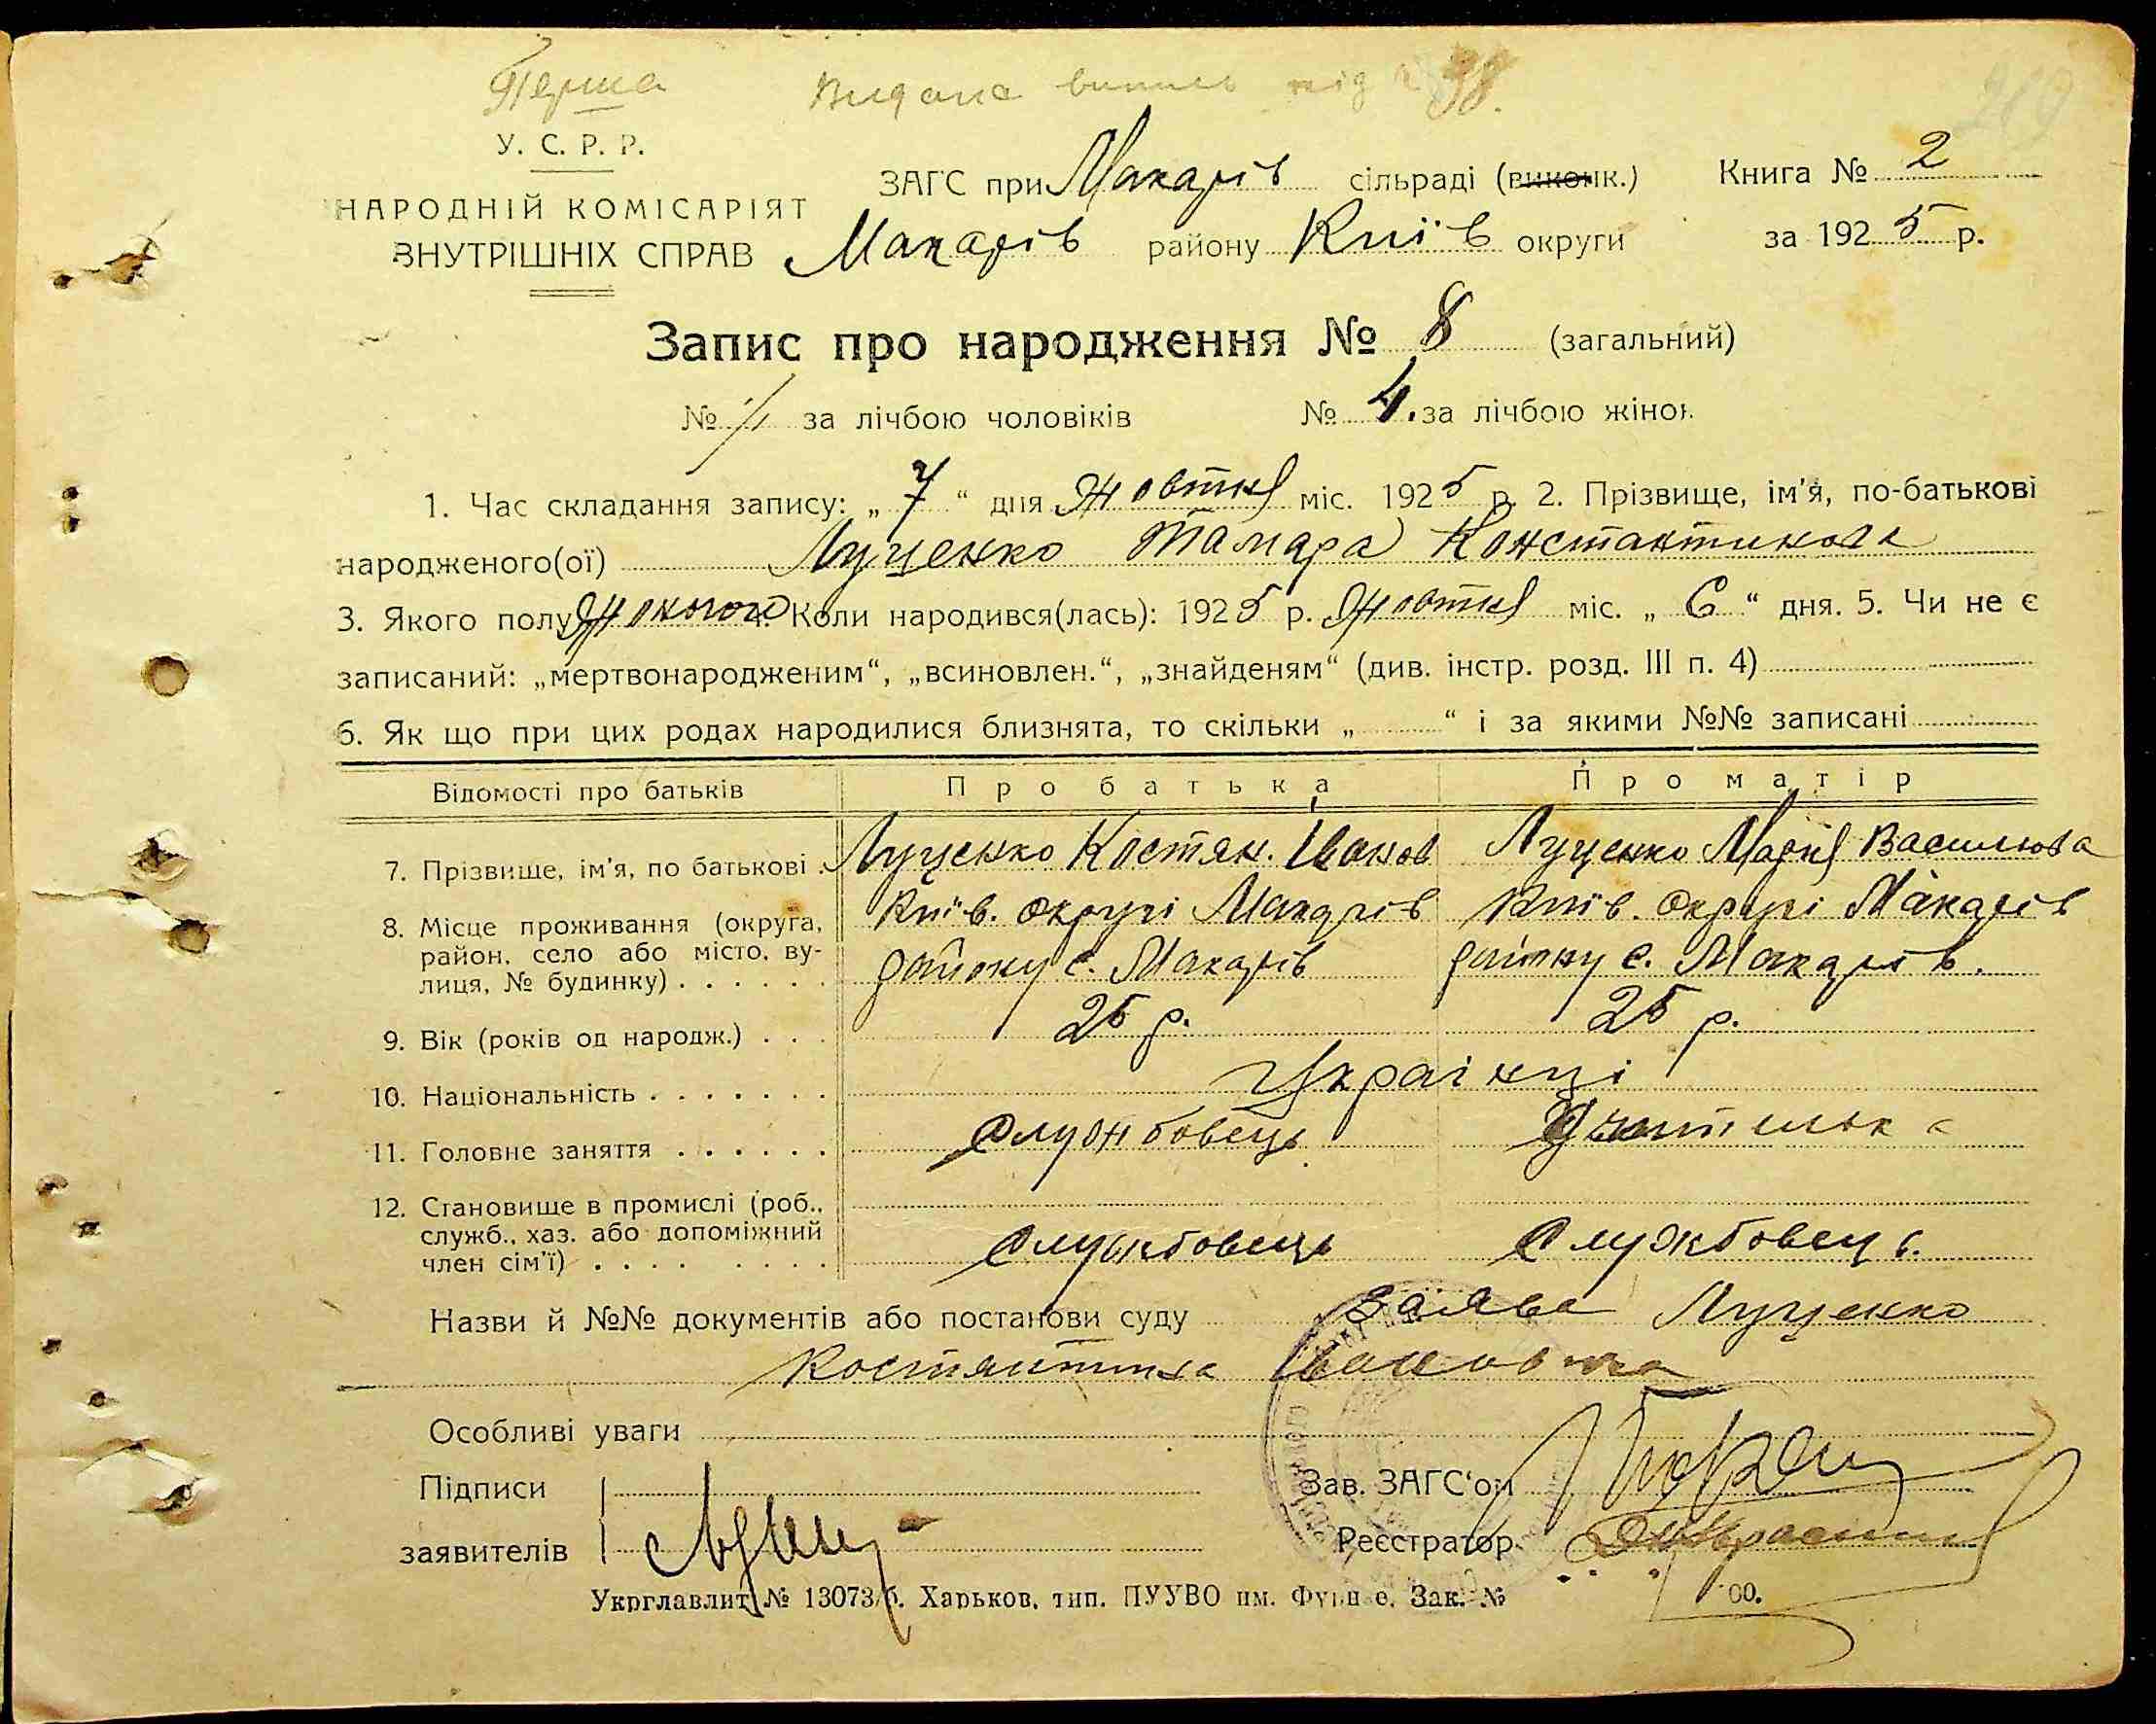 Перша Видана випись під № 98.
У. С. Р. Р.
НАРОДНІЙ КОМІСАРІЯТ
ВНУТРІШНІХ СПРАВ
ЗАГС при Макарів сільраді (виконк.) Книга № 2
Макарів району Київ округи за 1925 р.
Запис про народження № 8 (загальний)
№ за лічбою чоловіків № 4. за лічбою жінок
1. Час складання запису: „ 7 “ дня Жовтня міс. 1925 р. 2. Прізвище, ім'я, по-батькові
народженого(ої) Луценко Тамара Константинова
3. Якого полу Жоночого 4. Коли народився(лась): 1925 р. Жовтня міс. „ 6 “ дня. 5. Чи не є
записаний: „мертвонародженим“, „всиновлен.“, „знайденям“ (див. інстр. розд. III п. 4)
6. Як що при цих родах народилися близнята, то скільки „ “ і за якими №№ записані
Відомості про батьків Про батька Про матір
7. Прізвище, ім'я, по батькові Луценко Костян. Іванов Луценко Марія Василіова
8. Місце проживання (округа, район, село або місто, вулиця, № будинку) Київ. округі Макарів Київ. округі Макарів
району с. Макарів району с. Макарів.
9. Вік (років од народж.) 25 р. 25 р.
10. Національність Українці
11. Головне заняття Службовець Учителька
12. Становище в промислі (роб., служб., хаз. або допоміжний член сім'ї) Службовець Службовець.
Назви й №№ документів або постанови суду Заява Луценко
Костянтина Івановича
Особливі уваги
Підписи Зав. ЗАГС'ом
заявителів Реєстратор
Укрглавлит № 13073/б. Харьков, тип. ПУУВО им. Фрунзе. Зак. № 00.